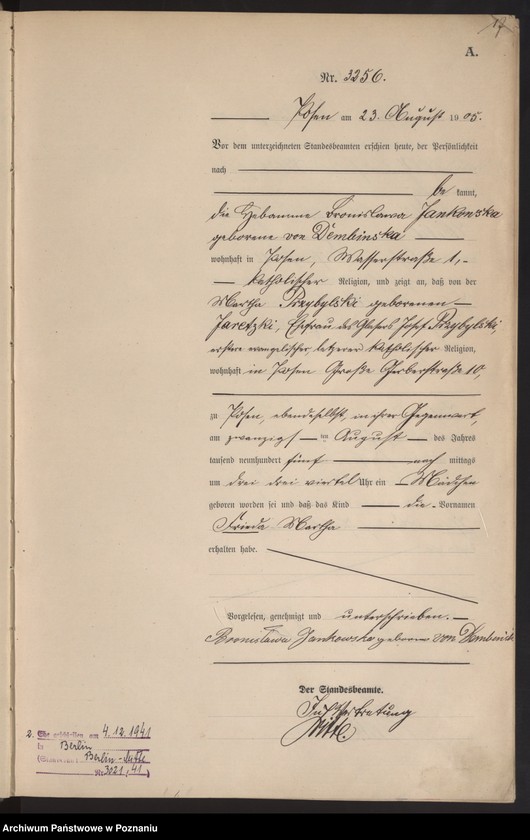 A.
Nr. 3256.
Posen am 23. August 1905.
Vor dem unterzeichneten Standesbeamten erschien heute, der Persönlichkeit
nach
bekannt,
die Hebamme Bronislawa Jankowska
geborene von Dembinska
wohnhaft in Posen, Wasserstraße 1,
katholischer Religion, und zeigte an, daß von der
Martha Przybylski geborenen
Jaretzki, Ehefrau des Glasers Josef Przybylski,
erstere evangelischer, letzterer katholischer Religion,
wohnhaft in Posen Große Gerberstraße 10,
zu Posen, ebendaselbst, in ihrer Gegenwart,
am zwanzigsten August des Jahres
tausend neunhundert fünf nachmittags
um drei drei viertel Uhr ein Mädchen
geboren worden sei und daß das Kind die Vornamen
Frieda Martha
erhalten habe.
Vorgelesen, genehmigt und unterschrieben.
Bronislawa Jankowska geborne von Dembinsk
Der Standesbeamte.
In Vertretung
2. Ehe geschlossen am 4.12.1941
in Berlin
Berlin-
Nr. 3021/41)
Archiwum Państwowe w Poznaniu